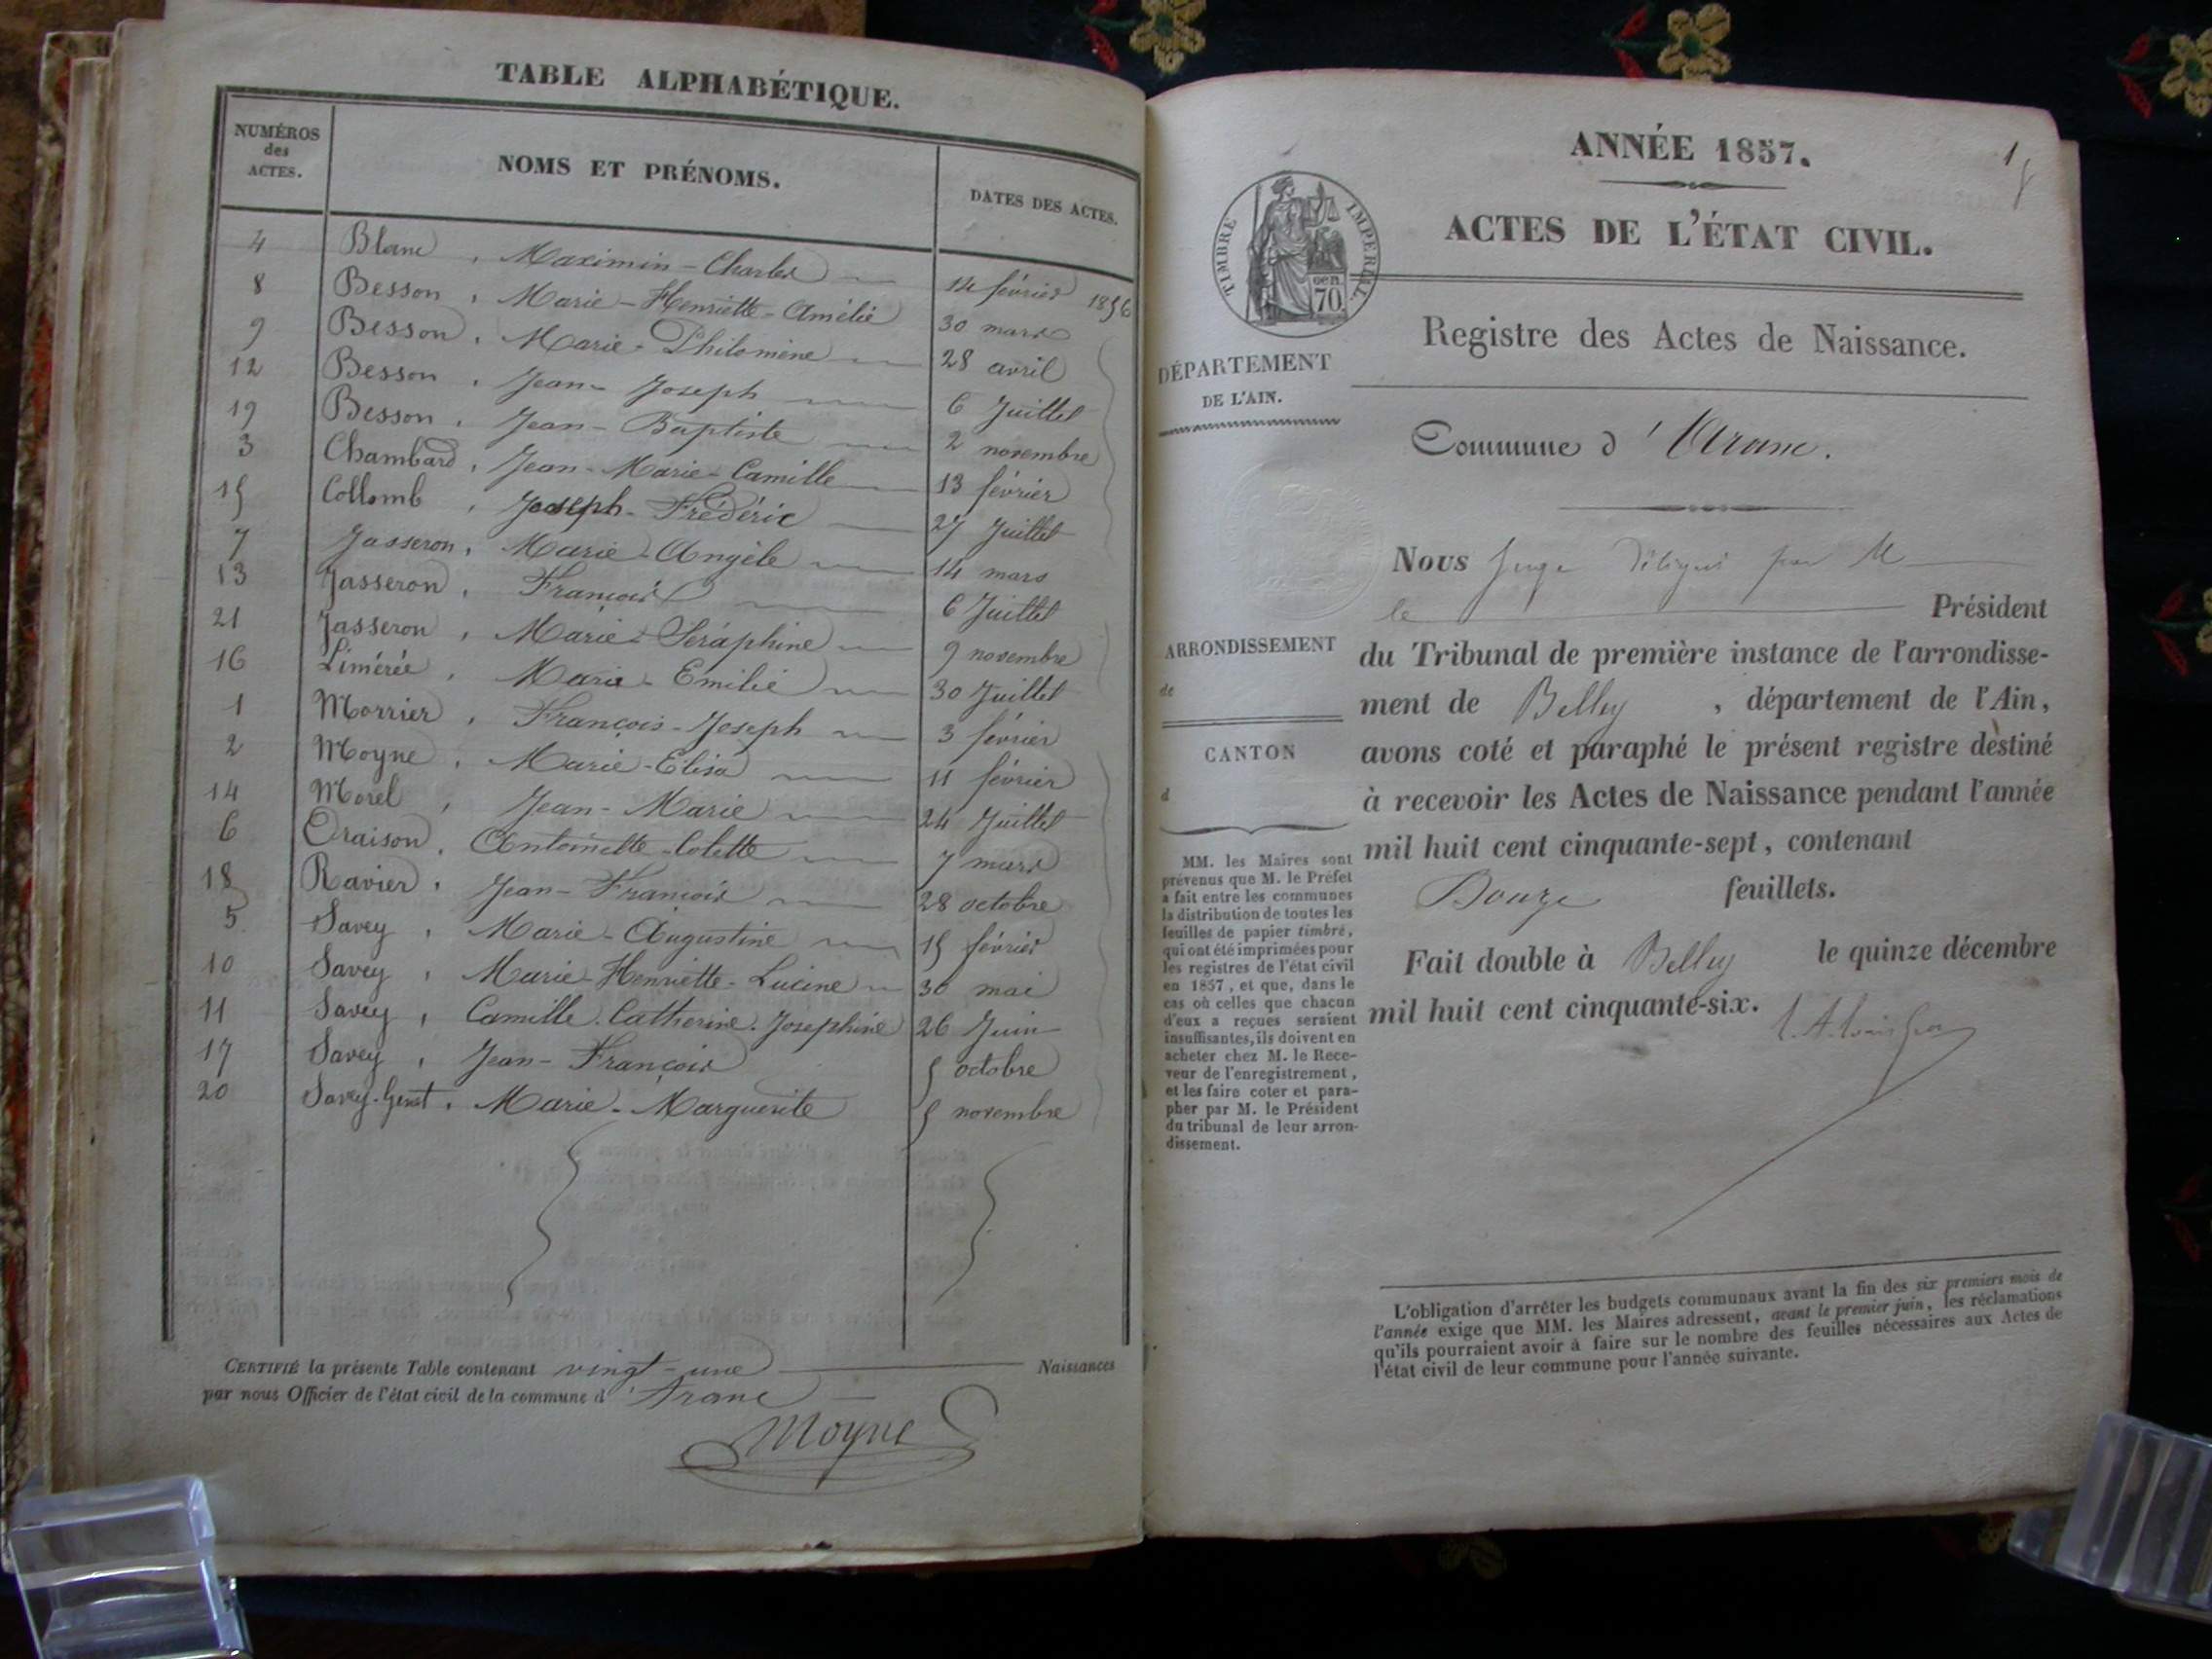 TABLE ALPHABÉTIQUE.
NUMÉROS des ACTES.
NOMS ET PRÉNOMS.
DATES DES ACTES.
4 Blanc, Maximin-Charles 14 février 1856
8 Besson, Marie-Henriette-Amélie 30 mars
9 Besson, Marie-Philomène 28 avril
12 Besson, Jean-Joseph 6 Juillet
19 Besson, Jean-Baptiste 2 novembre
3 Chambard, Jean-Marie-Camille 13 février
15 Collomb, Joseph-Frédéric 27 Juillet
7 Jasseron, Marie-Angèle 14 mars
13 Jasseron, François 6 Juillet
21 Jasseron, Marie-Séraphine 9 novembre
16 Limérée, Marie-Emilie 30 Juillet
1 Morrier, François-Joseph 3 février
2 Moyne, Marie-Elisa 11 février
14 Morel, Jean-Marie 24 Juillet
6 Oraison, Antoinette-Colette 7 mars
18 Ravier, Jean-François 28 octobre
5 Savey, Marie-Augustine 15 février
10 Savey, Marie-Henriette-Lucine 30 mai
11 Savey, Camille-Catherine-Josephine 26 Juin
17 Savey, Jean-François 5 octobre
20 Savey-Genet, Marie-Marguerite 5 novembre
CERTIFIÉ la présente Table contenant vingt-une Naissances
par nous Officier de l'état civil de la commune d'Aranc
Moyne
1
ANNÉE 1857.
TIMBRE IMPÉRIAL
cen. 70.
ACTES DE L'ÉTAT CIVIL.
Registre des Actes de Naissance.
DÉPARTEMENT
DE L'AIN.
Commune d'Aranc.
Nous Juge délégué par M
le Président
ARRONDISSEMENT
de
CANTON
d
du Tribunal de première instance de l'arrondisse-
ment de Belley, département de l'Ain,
avons coté et paraphé le présent registre destiné
à recevoir les Actes de Naissance pendant l'année
mil huit cent cinquante-sept, contenant
Douze feuillets.
Fait double à Belley le quinze décembre
mil huit cent cinquante-six.
MM. les Maires sont
prévenus que M. le Préfet
a fait entre les communes
la distribution de toutes les
feuilles de papier timbré,
qui ont été imprimées pour
les registres de l'état civil
en 1857, et que, dans le
cas où celles que chacun
d'eux a reçues seraient
insuffisantes, ils doivent en
acheter chez M. le Rece-
veur de l'enregistrement,
et les faire coter et para-
pher par M. le Président
du tribunal de leur arron-
dissement.
L'obligation d'arrêter les budgets communaux avant la fin des six premiers mois de
l'année exige que MM. les Maires adressent, avant le premier juin, les réclamations
qu'ils pourraient avoir à faire sur le nombre des feuilles nécessaires aux Actes de
l'état civil de leur commune pour l'année suivante.